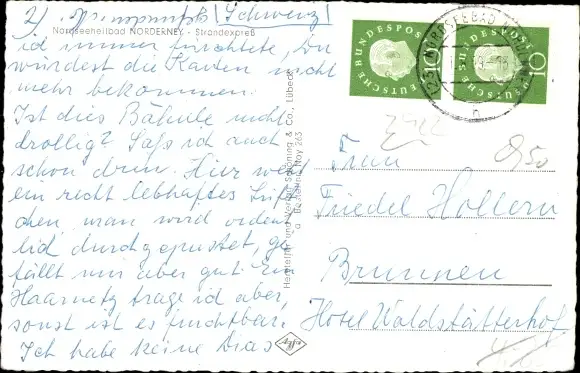 2)
(Schweiz)
Nordseeheilbad NORDERNEY - Strandexpreß
ich immer fürchtete, Du
würdest die Karten nicht
mehr bekommen.
Ist dies Bähnle nicht
drollig? Saß ich auch
schon drin. Hier weht
ein recht lebhaftes Lüft-
chen, man wird orden-
lich durchgepustet, ge-
fällt mir aber gut. Ein
Haarnetz trage ich aber,
sonst ist es furchtbar.
Ich habe keine Dias
Hersteller und Verlag Schöning & Co., Lübeck
Nay 263
DEUTSCHE BUNDESPOST
10
DEUTSCHE BUNDESPOST
10
NORDSEEBAD
Frau
Friedel Hollern
Brunnen
Hotel Waldstätterhof